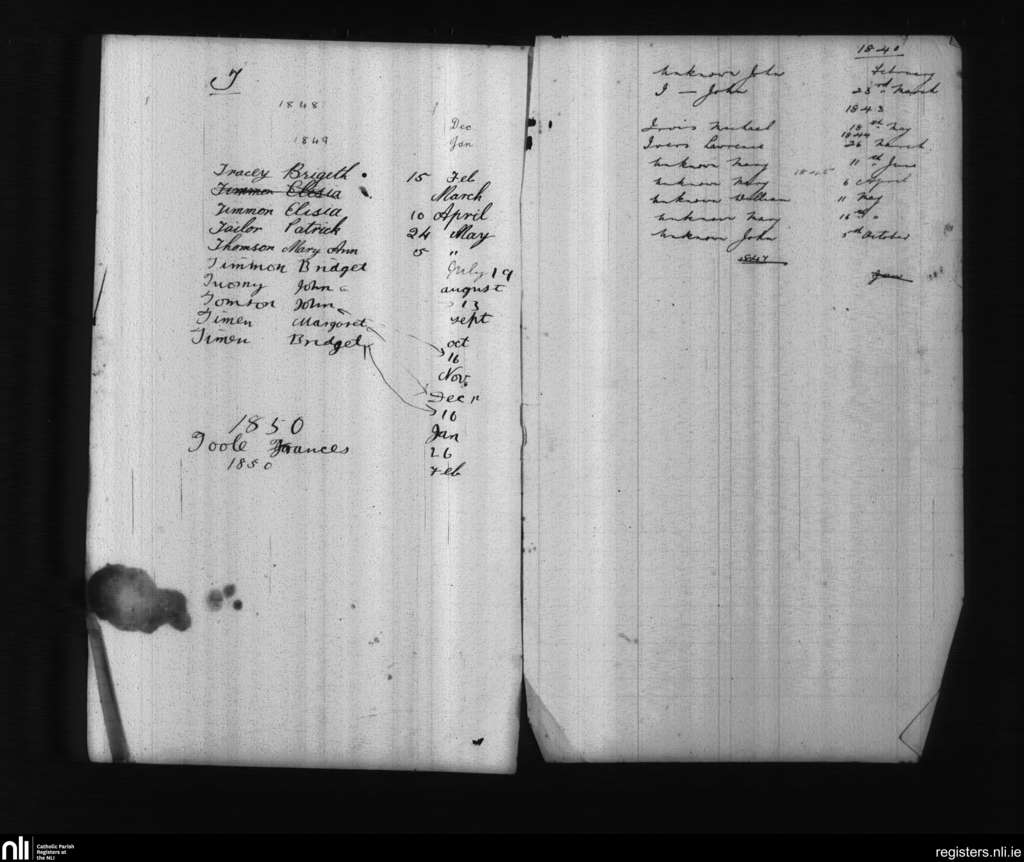 T
1848
Dec
1849 Jan
Tracey Brigeth 15 Feb
Timmon Elisia March
Timmon Elisia 10 April
Tailor Patrick 24 May
Thomson Mary Ann 5 "
Timmon Bridget July 19
Tuomy John august
Tomson John 13
Timen Margaret sept
Timen Bridget oct
16
Nov
Decr
10
1850 Jan
Toole Frances 26
1850 Feb
1840
Unknown John February
I — John 23rd March
1843
Irvis Michael 18th May
1844
Ivers Lawrence 26 March
Unknown Mary 11th June
1845
Unknown Mary 6 April
Unknown William 11 May
Unknown Mary 16th "
Unknown John 5th October
1847
Jan
nli
Catholic Parish
Registers at
the NLI
registers.nli.ie